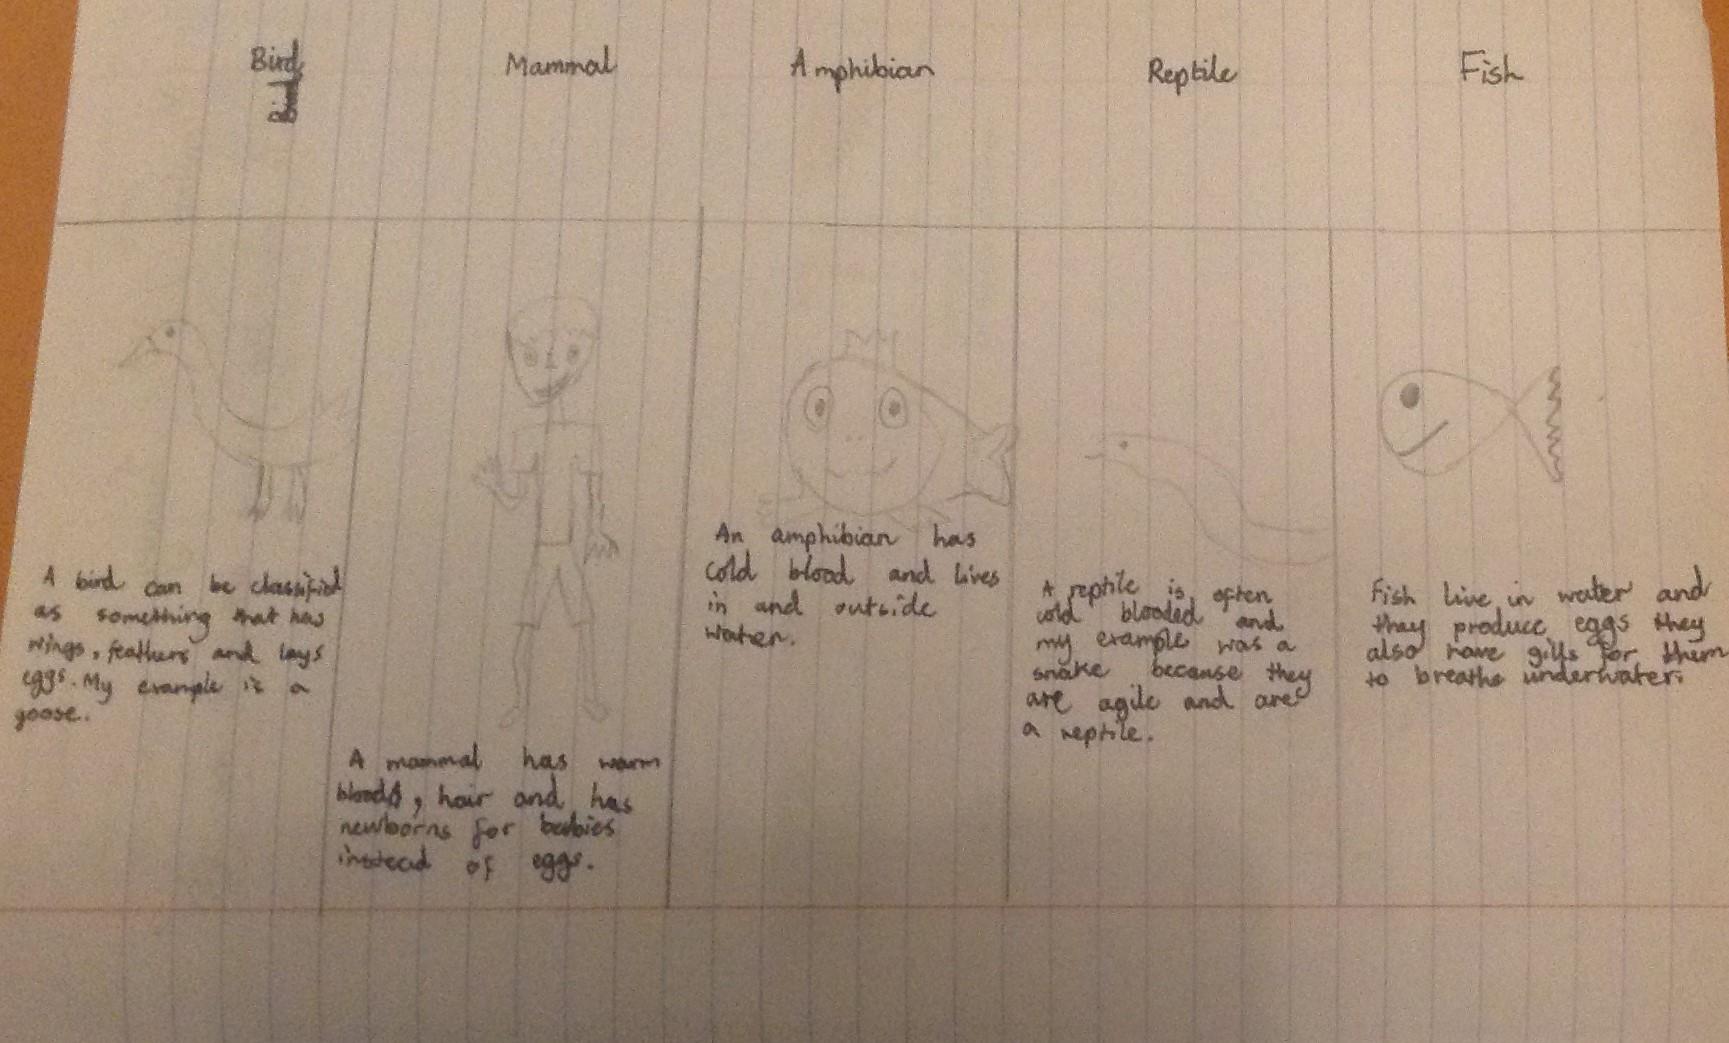 Bird
Mammal
Amphibian
Reptile
Fish
A bird can be classified
as something that has
wings, feathers and lays
eggs. My example is a
goose.
A mammal has warm
blood, hair and has
newborns for babies
instead of eggs.
An amphibian has
cold blood and lives
in and outside
water.
A reptile is often
cold blooded and
my example was a
snake because they
are agile and are
a reptile.
Fish live in water and
they produce eggs they
also have gills for them
to breathe underwater.